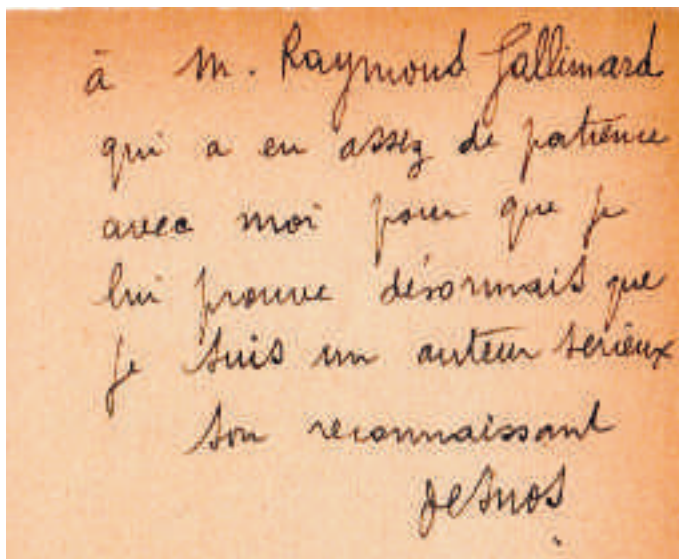 à M. Raymond Gallimard
qui a eu assez de patience
avec moi pour que je
lui prouve désormais que
je suis un auteur sérieux
son reconnaissant
Desnos